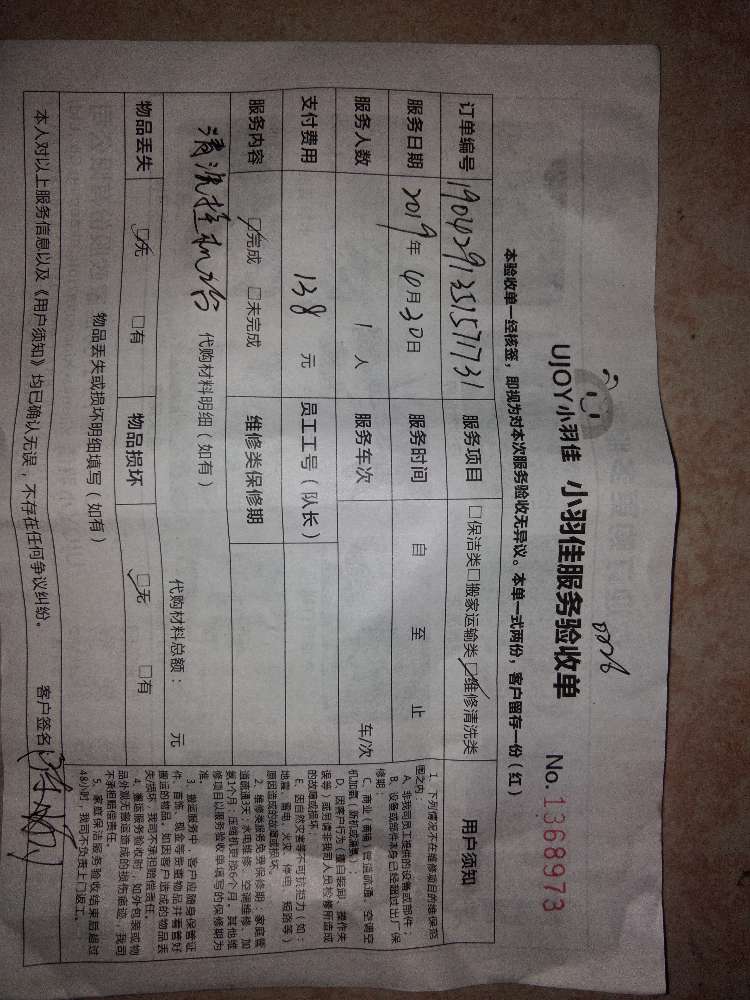 UJOY小羽佳 小羽佳服务验收单 No. 1368973
本验收单一经核签，即视为对本次服务验收无异议。本单一式两份，客户留存一份（红）
订单编号 190429135157731 服务项目 □保洁类□搬家运输类□维修清洗类
服务日期 2019年4月30日 服务时间 自 至 止
服务人数 1 人 服务车次 车/次
支付费用 138 元 员工工号（队长）
服务内容 □完成 □未完成 维修类保修期
代购材料明细（如有）
代购材料总额： 元
物品丢失 □无 □有 物品损坏 □无 □有
物品丢失或损坏明细填写（如有）
本人对以上服务信息以及《用户须知》均已确认无误，不存在任何争议纠纷。 客户签名
用户须知
1、下列情况不在维修项目的维保范
围之内
A、非我司员工提供的设备或部件；
B、设备或部件本身已经超过出厂保
修期；
C、商业（商铺）管道疏通、空调空
D、因客户行为（擅自装卸、操作失
误等）或另请非我司人员检修所造成
的故障或损坏；
E、因自然灾害等不可抗拒力（如：
地震、雷电、火灾、停电、短路等）
原因造成的故障或损坏。
2、维修类服务免费保修期：家庭管
道疏通3天，水电维修、空调维修、加
氟1个月，压缩机更换6个月，其他维
修项目以服务验收单填写的保修期为
准。
3、搬运服务中，客户应随身保管证
件、首饰、现金等贵重物品并看管好
搬运的物品，如因客户造成的物品丢
失/损坏，我司不承担赔偿责任。
4、搬运服务验收时，如外包装或物
品外观无搬运造成的损伤痕迹，我司
不承担赔偿责任。
5、家庭保洁服务验收结束后超过
48小时，我司不负责上门返工。